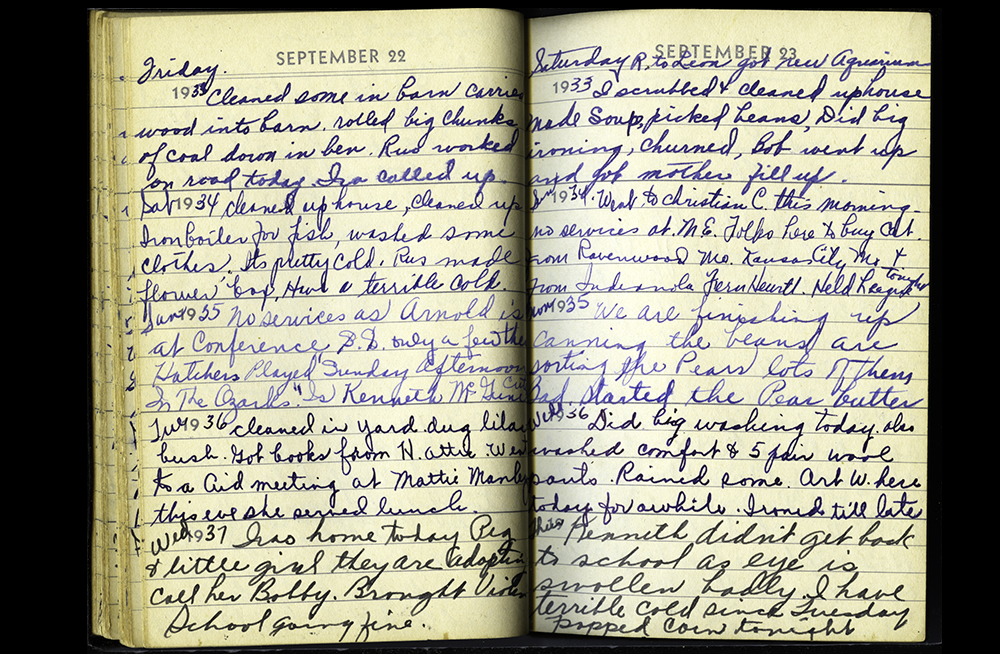 SEPTEMBER 22
Friday.
1933 Cleaned some in barn carried
wood into barn. rolled big chunks
of coal down in ben. Rus worked
on road today. Ira called up.
Sat 1934 cleaned up house, cleaned up
Iron boiler for fish, washed some
clothes. Its pretty cold. Rus made
flower bag, Have a terrible cold.
Sun 1935 No services as Arnold is
at Conference, S.S. only a few the
Hatchers Played Sunday afternoon
In The Ozarks." Is Kenneth
Tue 1936 cleaned in yard dug lilac
bush. Got books from H. attic. Went
to a Aid meeting at Mattie Manley
this eve she served lunch.
Wed 1937 Iras home today Peg
& little girl they are adopting
call her Bobby. Brought
School going fine.
SEPTEMBER 23
Saturday R. to Leon got new Aquarium
1933 I scrubbed & cleaned up house
made Soup, picked beans, Did big
ironing, churned, Bob went up
and got mother fill up.
Sun 1934. Went to christian C. this morning.
no services at M.E. Folks here to buy Cat.
from Ravenwood Mo. Kansas City Mo. &
from Indianola Fern Hewitt. Held League tonight
Mon 1935 We are finishing up
canning the beans are
sorting the Pears lots of them
Bad. started the Pear butter
Wed 1936 Did big washing today. also
washed comfort & 5 pair wool
pants. Rained some. Art W. here
today for awhile. Ironed till late
Thurs Kenneth didn't get back
to school as eye is
swollen badly. I have
terrible cold since Tuesday
Popped Corn tonight